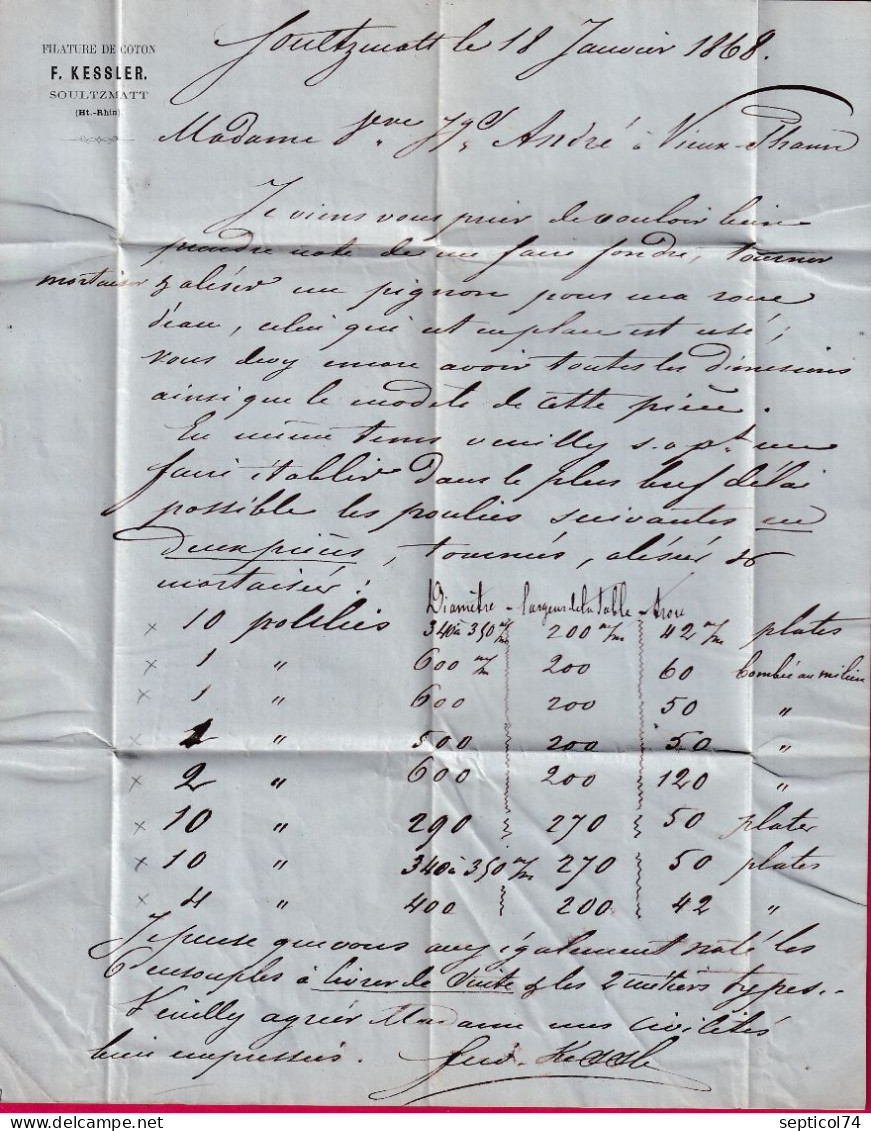 FILATURE DE COTON
F. KESSLER.
SOULTZMATT
(Ht.-Rhin)
Soultzmatt le 18 Janvier 1868.
Madame André à Vieux-Thann
Je viens vous prier de vouloir bien
prendre note de me faire fondre, tourner
mortaiser & aléser un pignon pour ma roue
d'eau, celui qui est en place est usé;
vous devez encore avoir toutes les dimensions
ainsi que le modèle de cette pièce.
En même tems veuillez s. a. pt. me
faire établir dans le plus bref délai
possible les poulies suivantes en
deux pièces, tournées, alésées &
mortaisées:
Diamètre - largeur de la table - trou
× 10 poulies 340 à 350 m/m 200 m/m 42 m/m plates
× 1 " 600 m/m 200 60 bombée au milieu
× 1 " 600 200 50 "
× 1 " 500 200 50 "
× 2 " 600 200 120 "
× 10 " 290 270 50 plates
× 10 " 340 à 350 m/m 270 50 plates
× 4 " 400 200 42 "
Je pense que vous avez également noté les
6 ensouples à livrer de suite & les 2 métiers types.-
Veuillez agréer Madame mes civilités
bien empressées. Kessler
septicol74